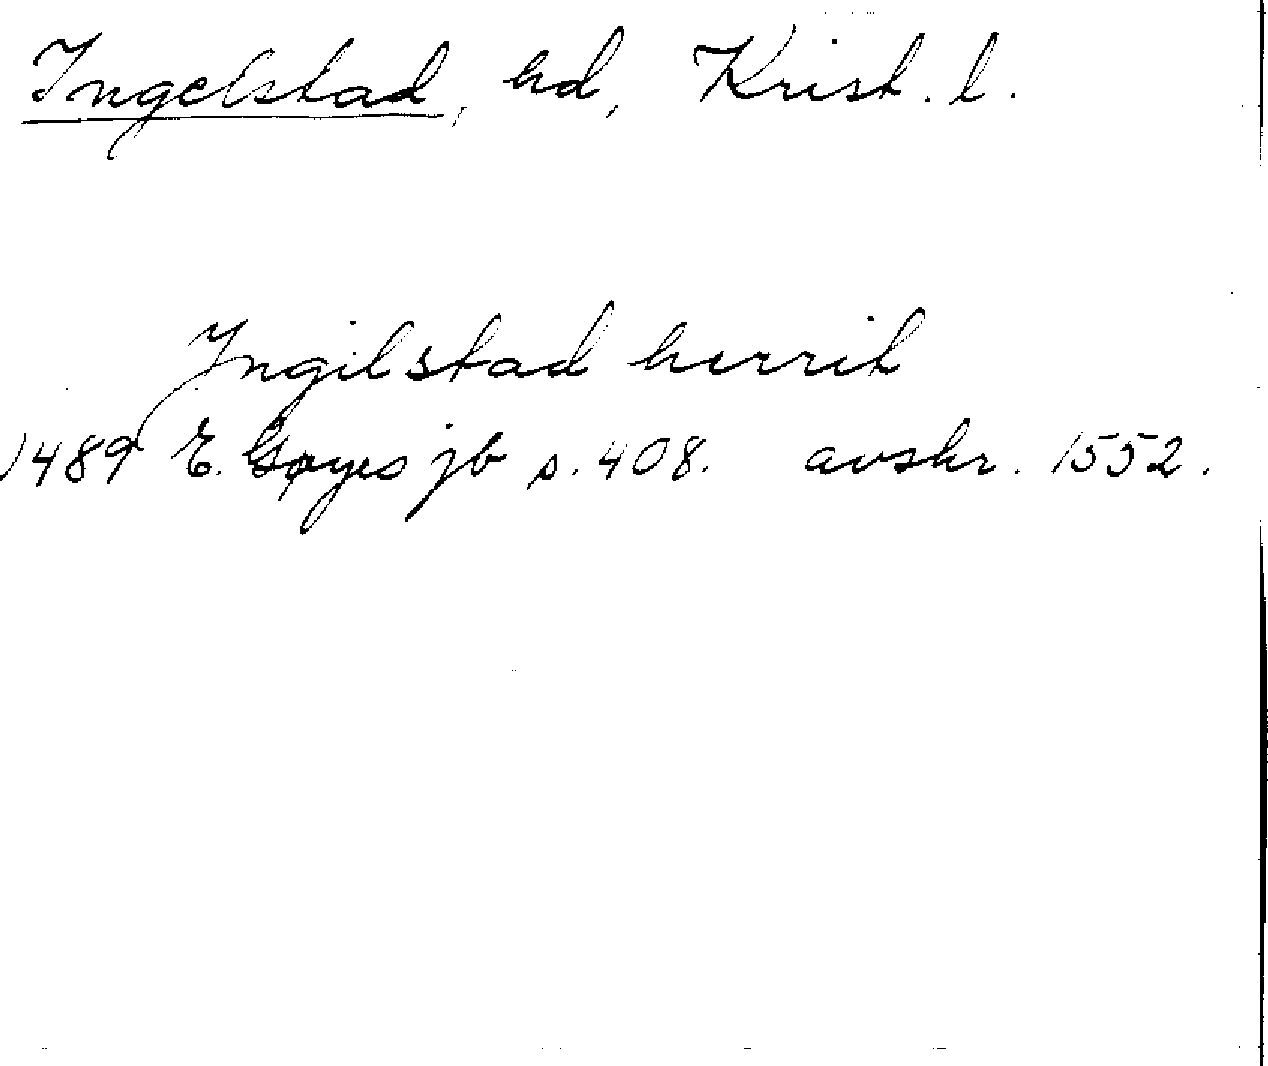 Ingelstad, hd, Krist. l.
Ingilstad herrit
1489 E. Gøyes jb s. 408. avskr. 1552.